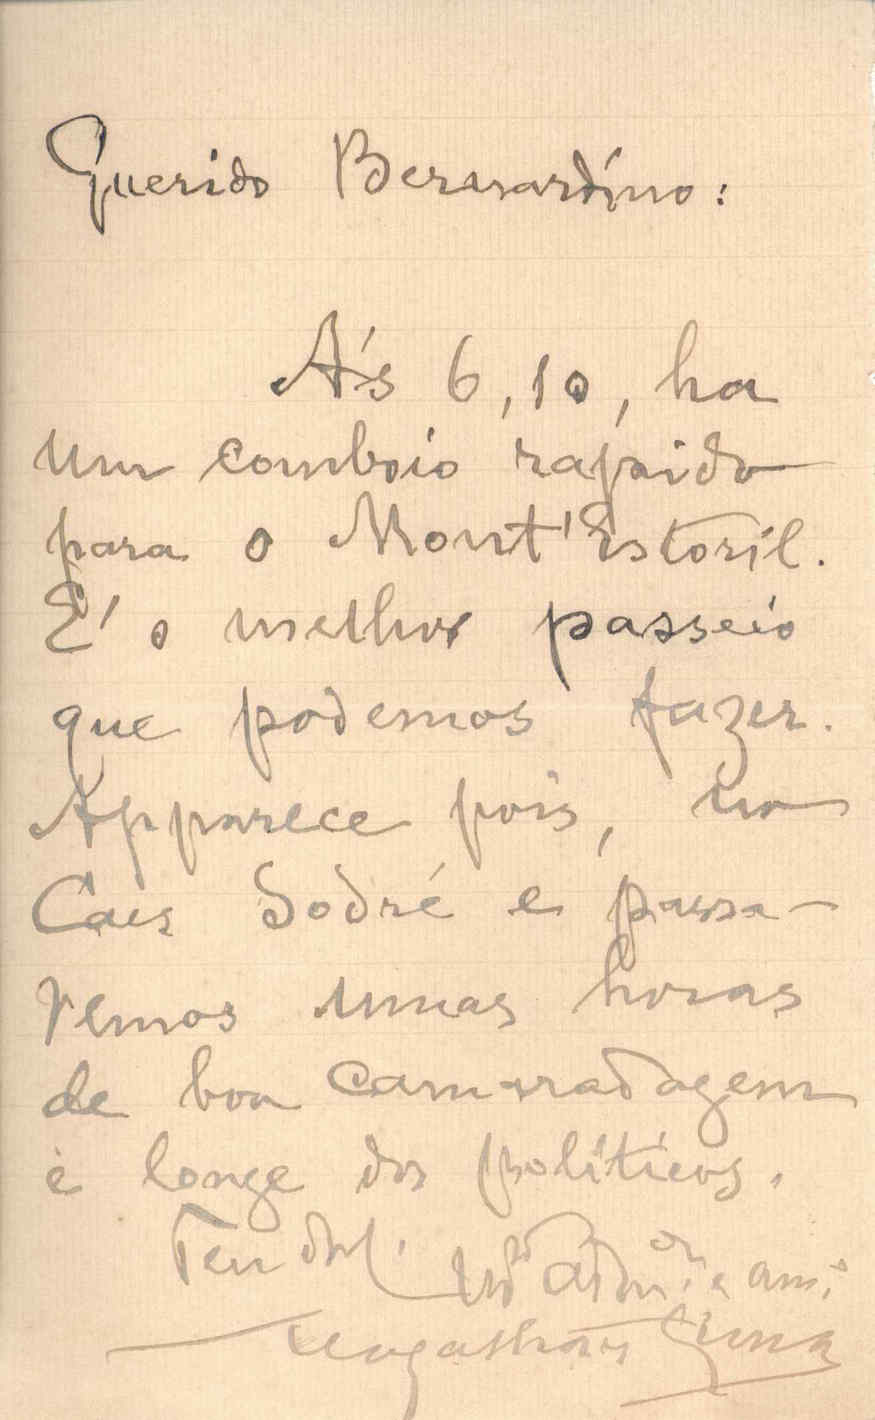 Querido Bernardino:
A's 6,10, ha
um comboio rapido
para o Mont'Estoril.
E' o melhor passeio
que podemos fazer.
Apparece pois, no
Caes Sodré e passa-
remos umas horas
de boa camaradagem
e longe dos politicos.
Teu
Magalhães Lima